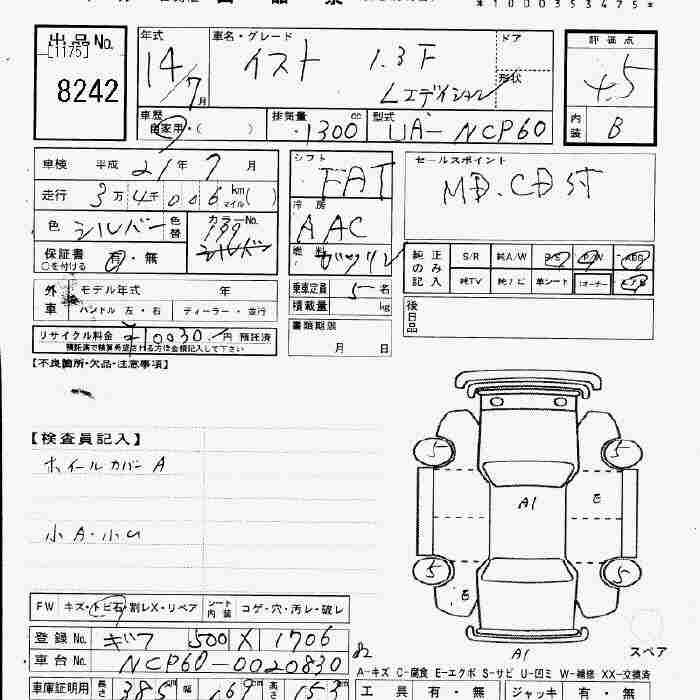 *1000353475*
出品No.
[1175]
8242
年式
14/7月
車名・グレード
イスト 1.3F
Lエディション
ドア
形状
評価点
4.5
内装 B
車歴
自家用・( )
排気量 cc
1300
型式
UA-NCP60
車検 平成 21年 7月
走行 3万4千006km
マイル( )
色 シルバー 色替
カラーNo.
199
シルバー
保証書 有・無
○を付ける
シフト
FAT
冷房
AAC
燃料
ガソリン
乗車定員 5名
積載量 kg
書類期限
月 日
セールスポイント
MD.CD付
純正のみ記入
S/R 純A/W P/S P/W ABG
純TV 純ナビ 革シート
後日品
外車
モデル年式 年
ハンドル 左・右 ディーラー・並行
リサイクル料金 ¥10030円 預託済
預託済で精算希望される方は金額記入して下さい
【不良箇所・欠品・注意事項】
【検査員記入】
ホイールカバーA
小A・小U
A1
E
5
5
5
5
E
A1
スペア
FW キズ・トビ石・割レX・リペア シート内装 コゲ・穴・汚レ・破レ
登録No. ギフ 500 X 1706
車台No. NCP60-0020830
車庫証明用 長さ 385cm 幅 169cm 高さ 153cm
A-キズ C-腐食 E-エクボ S-サビ U-凹ミ W-補修 XX-交換済
工具 有・無 ジャッキ 有・無